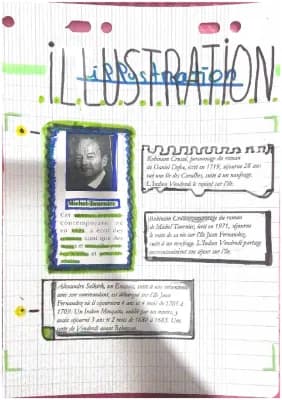 ILLUSTRATION
illustration
Michel Tournier
Robinson Crusoé, personnage du roman
de Daniel Defoe, écrit en 1719, séjourne 28 ans
sur une île des Caraïbes, suite à un naufrage.
L'Indien Vendredi le rejoint sur l'île.
Robinson Crusoé, personnage du roman
de Michel Tournier, écrit en 1971, séjourne
le reste de sa vie sur l'île Juan Fernandez,
suite à un naufrage. L'Indien Vendredi partage
son séjour sur l'île.
Alexandre Selkirk, un Écossais, suite à une mésentente
avec son commandant, est débarqué sur l'île Juan
Fernandez où il séjournera 4 ans et 4 mois de 1705 à
1709. Un Indien Mosquito, oublié par un navire, y
avait séjourné 3 ans et 2 mois de 1680 à 1683. Une
sorte de Vendredi avant Robinson.